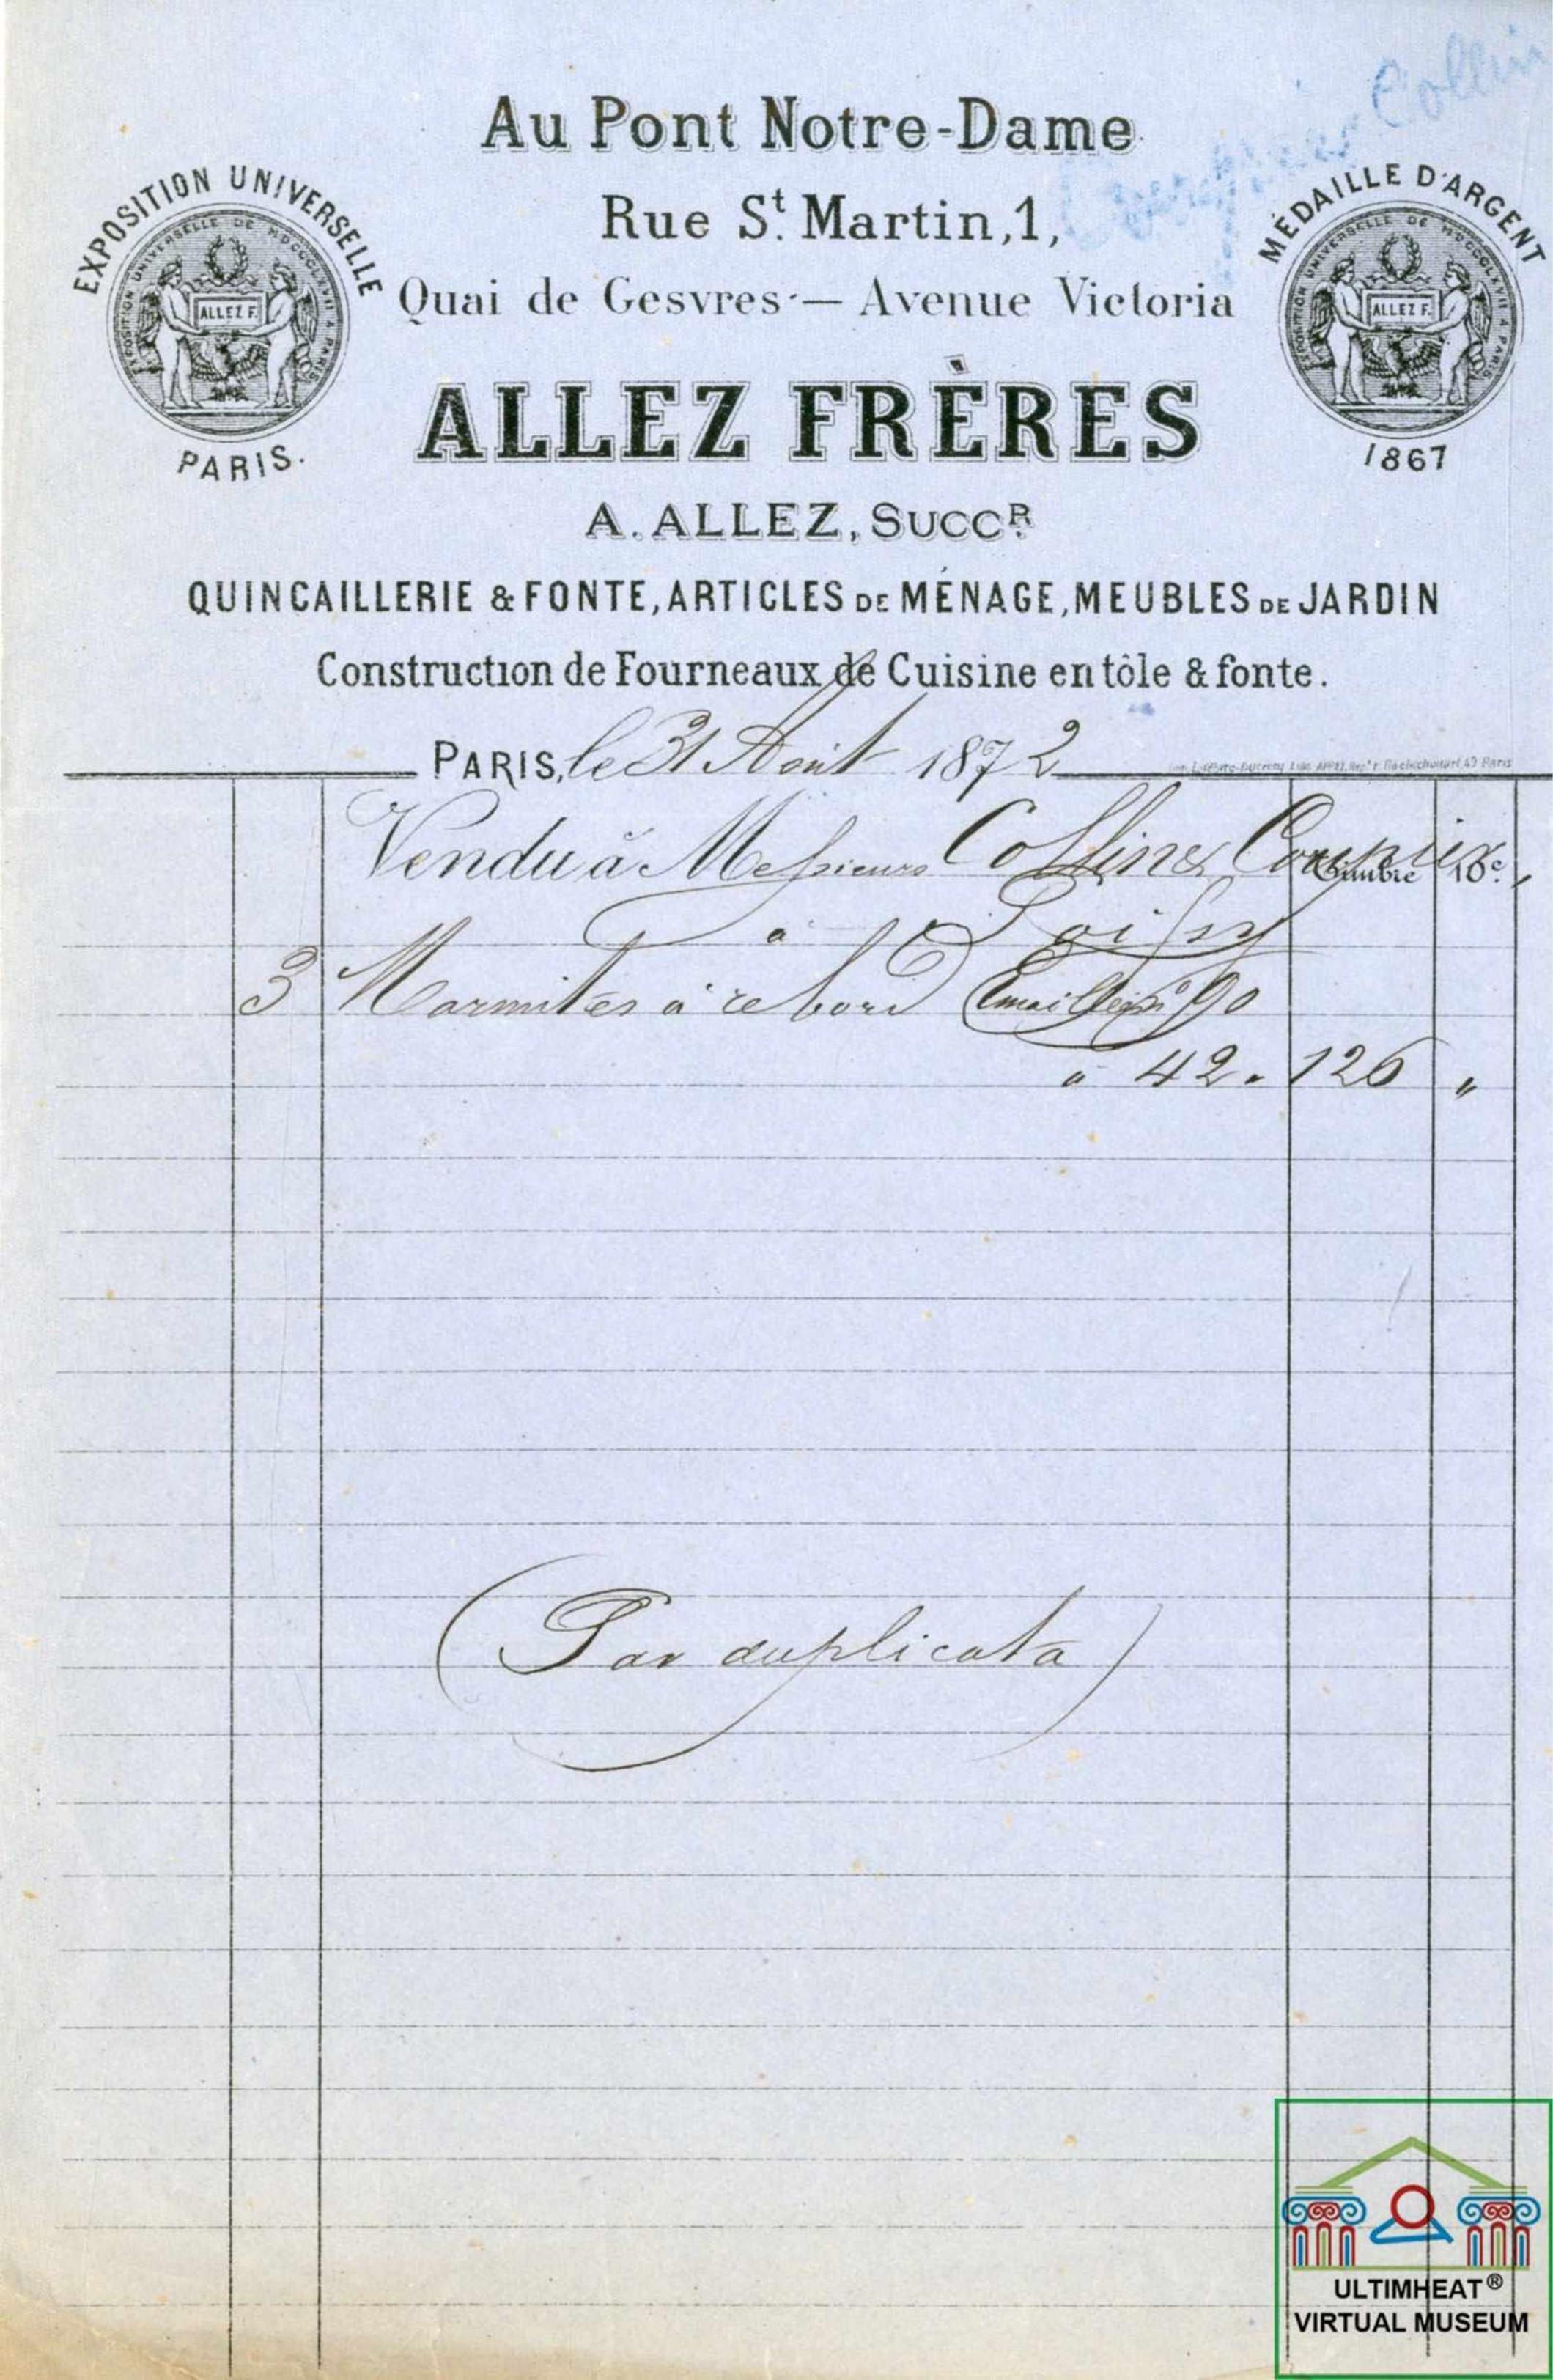 Collin
Au Pont Notre-Dame
EXPOSITION UNIVERSELLE
MÉDAILLE D'ARGENT
Rue St. Martin, 1,
EXPOSITION UNIVERSELLE DE MDCCCLXVII A PARIS
ALLEZ F.
EXPOSITION UNIVERSELLE DE MDCCCLXVII A PARIS
ALLEZ F.
Quai de Gesvres — Avenue Victoria
ALLEZ FRÈRES
PARIS.
1867
A. ALLEZ, SUCCR.
QUINCAILLERIE & FONTE, ARTICLES DE MÉNAGE, MEUBLES DE JARDIN
Construction de Fourneaux de Cuisine en tôle & fonte.
PARIS, le 31 Août 1872
Vendu à Messieurs Collin & Timbre 10c.
à
3 Marmites à rebord Emaillées no 90
à 42 " 126 "
(Par duplicata)
ULTIMHEAT®
VIRTUAL MUSEUM